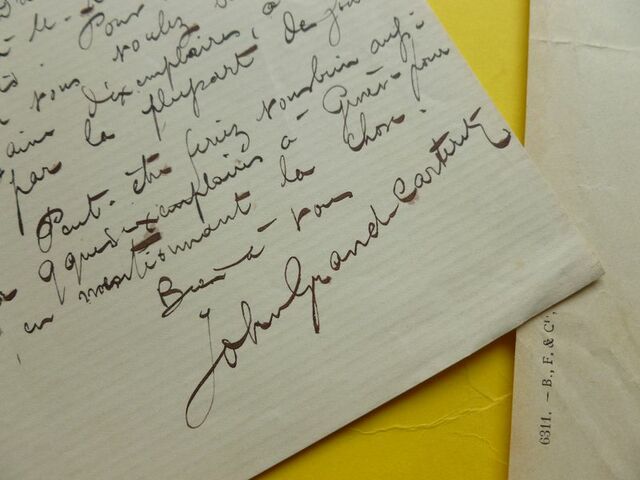 Pour
vous voulez
d'exemplaires, à
par la plupart de
Peut-être feriez vous bien aussi
qques exemplaires à Genève pour
en mentionnant la chose.
Bien à vous
John Grand-Carteret
6311. — B., F. & Cie